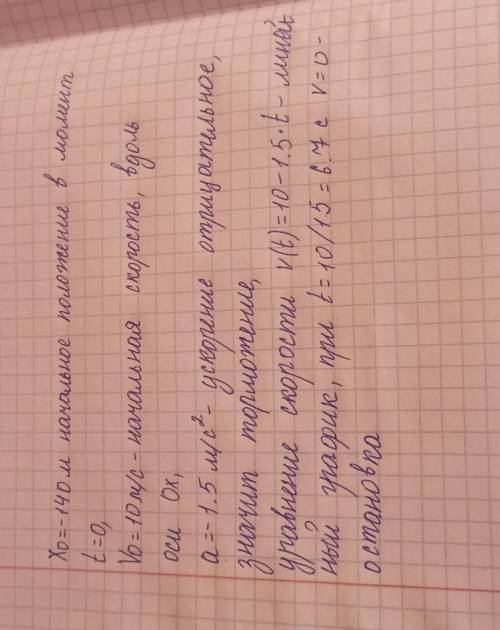 X0=-140м начальное положение в момент
t=0,
V0=10м/с - начальная скорость, вдоль
оси Ox,
a=-1.5 м/с² - ускорение отрицательное,
значит торможение,
уравнение скорости v(t)=10-1.5·t - линей
ный график, при t=10/1.5=6.7с v=0 -
остановка